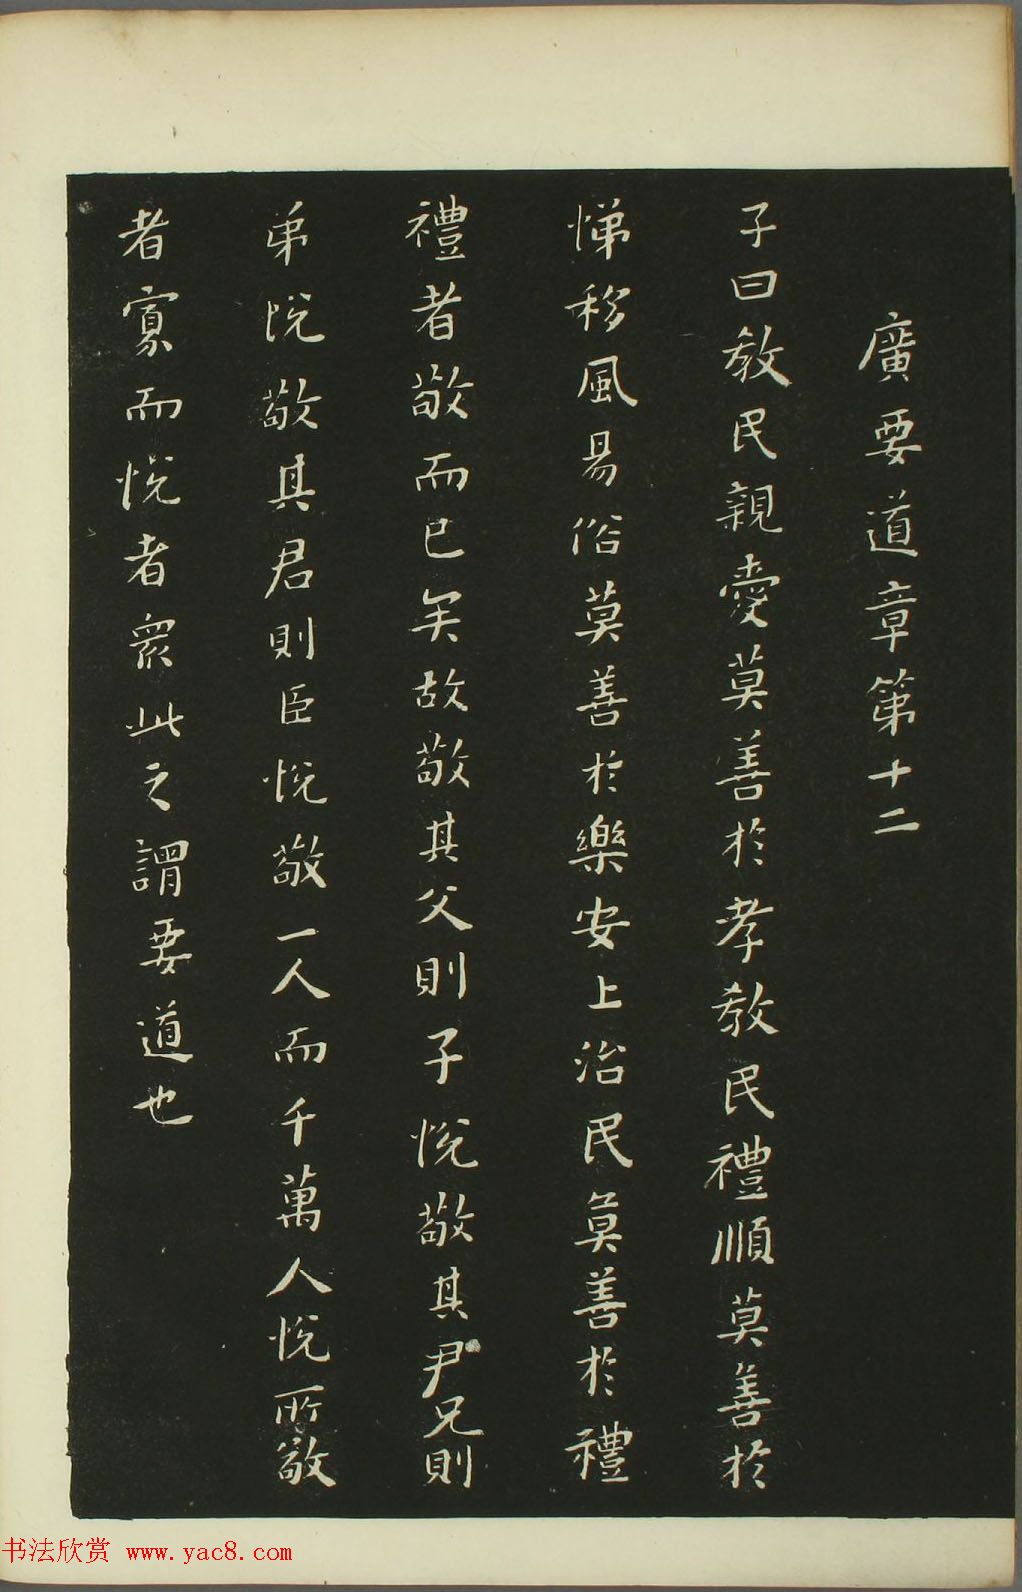 廣要道章第十二
子曰教民親愛莫善於孝教民禮順莫善於
悌移風易俗莫善於樂安上治民莫善於禮
禮者敬而已矣故敬其父則子悅敬其尹兄則
弟悅敬其君則臣悅敬一人而千萬人悅所敬
者寡而悅者衆此之謂要道也
书法欣赏 www.yac8.com